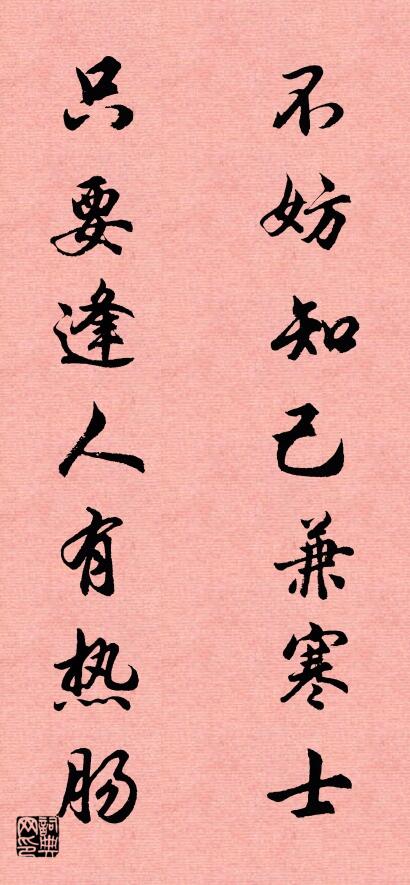 不妨知己兼寒士
只要逢人有热肠
詞典网印